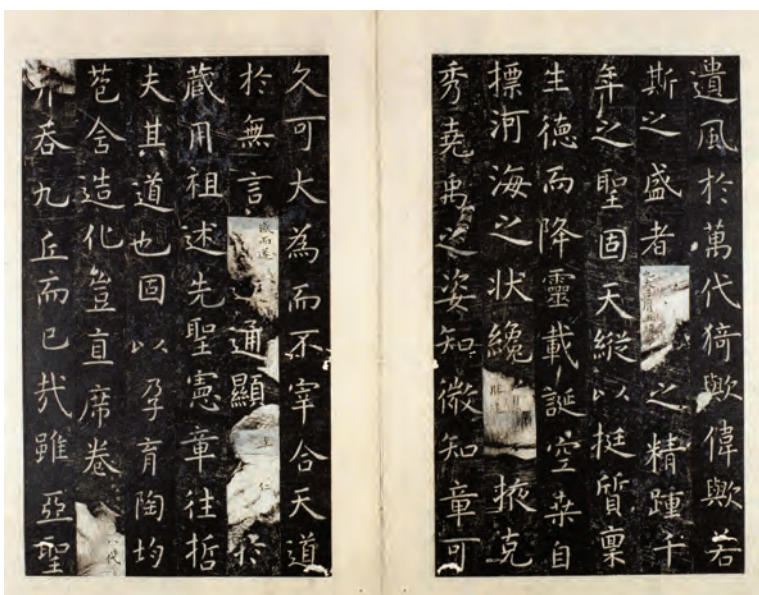 遺風於萬代猗歟偉歟若
斯之盛者之精踵千
年之聖固天縱以挺質稟
生德而降靈載誕空桒自
摽河海之状纔掖克
秀堯禹之姿知微知章可
久可大為而不宰合天道
於無言感而遂通顯仁於
藏用祖述先聖憲章往哲
夫其道也固以孕育陶均
苞含造化豈直席卷八代
并吞九丘而已哉雖亞聖